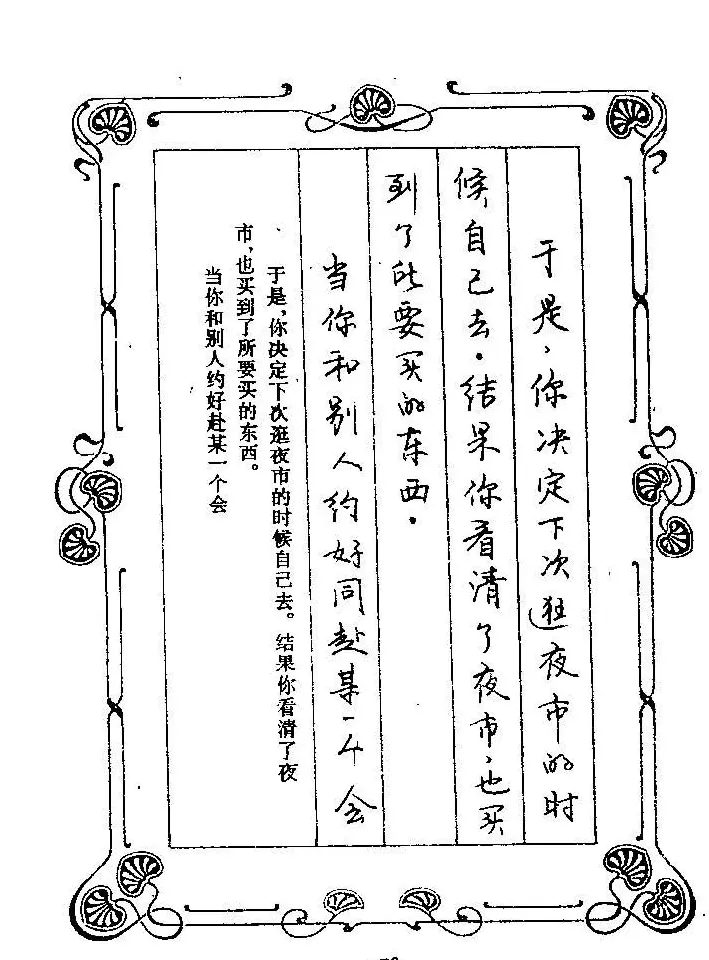 于是，你决定下次逛夜市的时
候自己去。结果你看清了夜市，也买
到了所要买的东西。
当你和别人约好同赴某一个会
于是，你决定下次逛夜市的时候自己去。结果你看清了夜
市，也买到了所要买的东西。
当你和别人约好赴某一个会